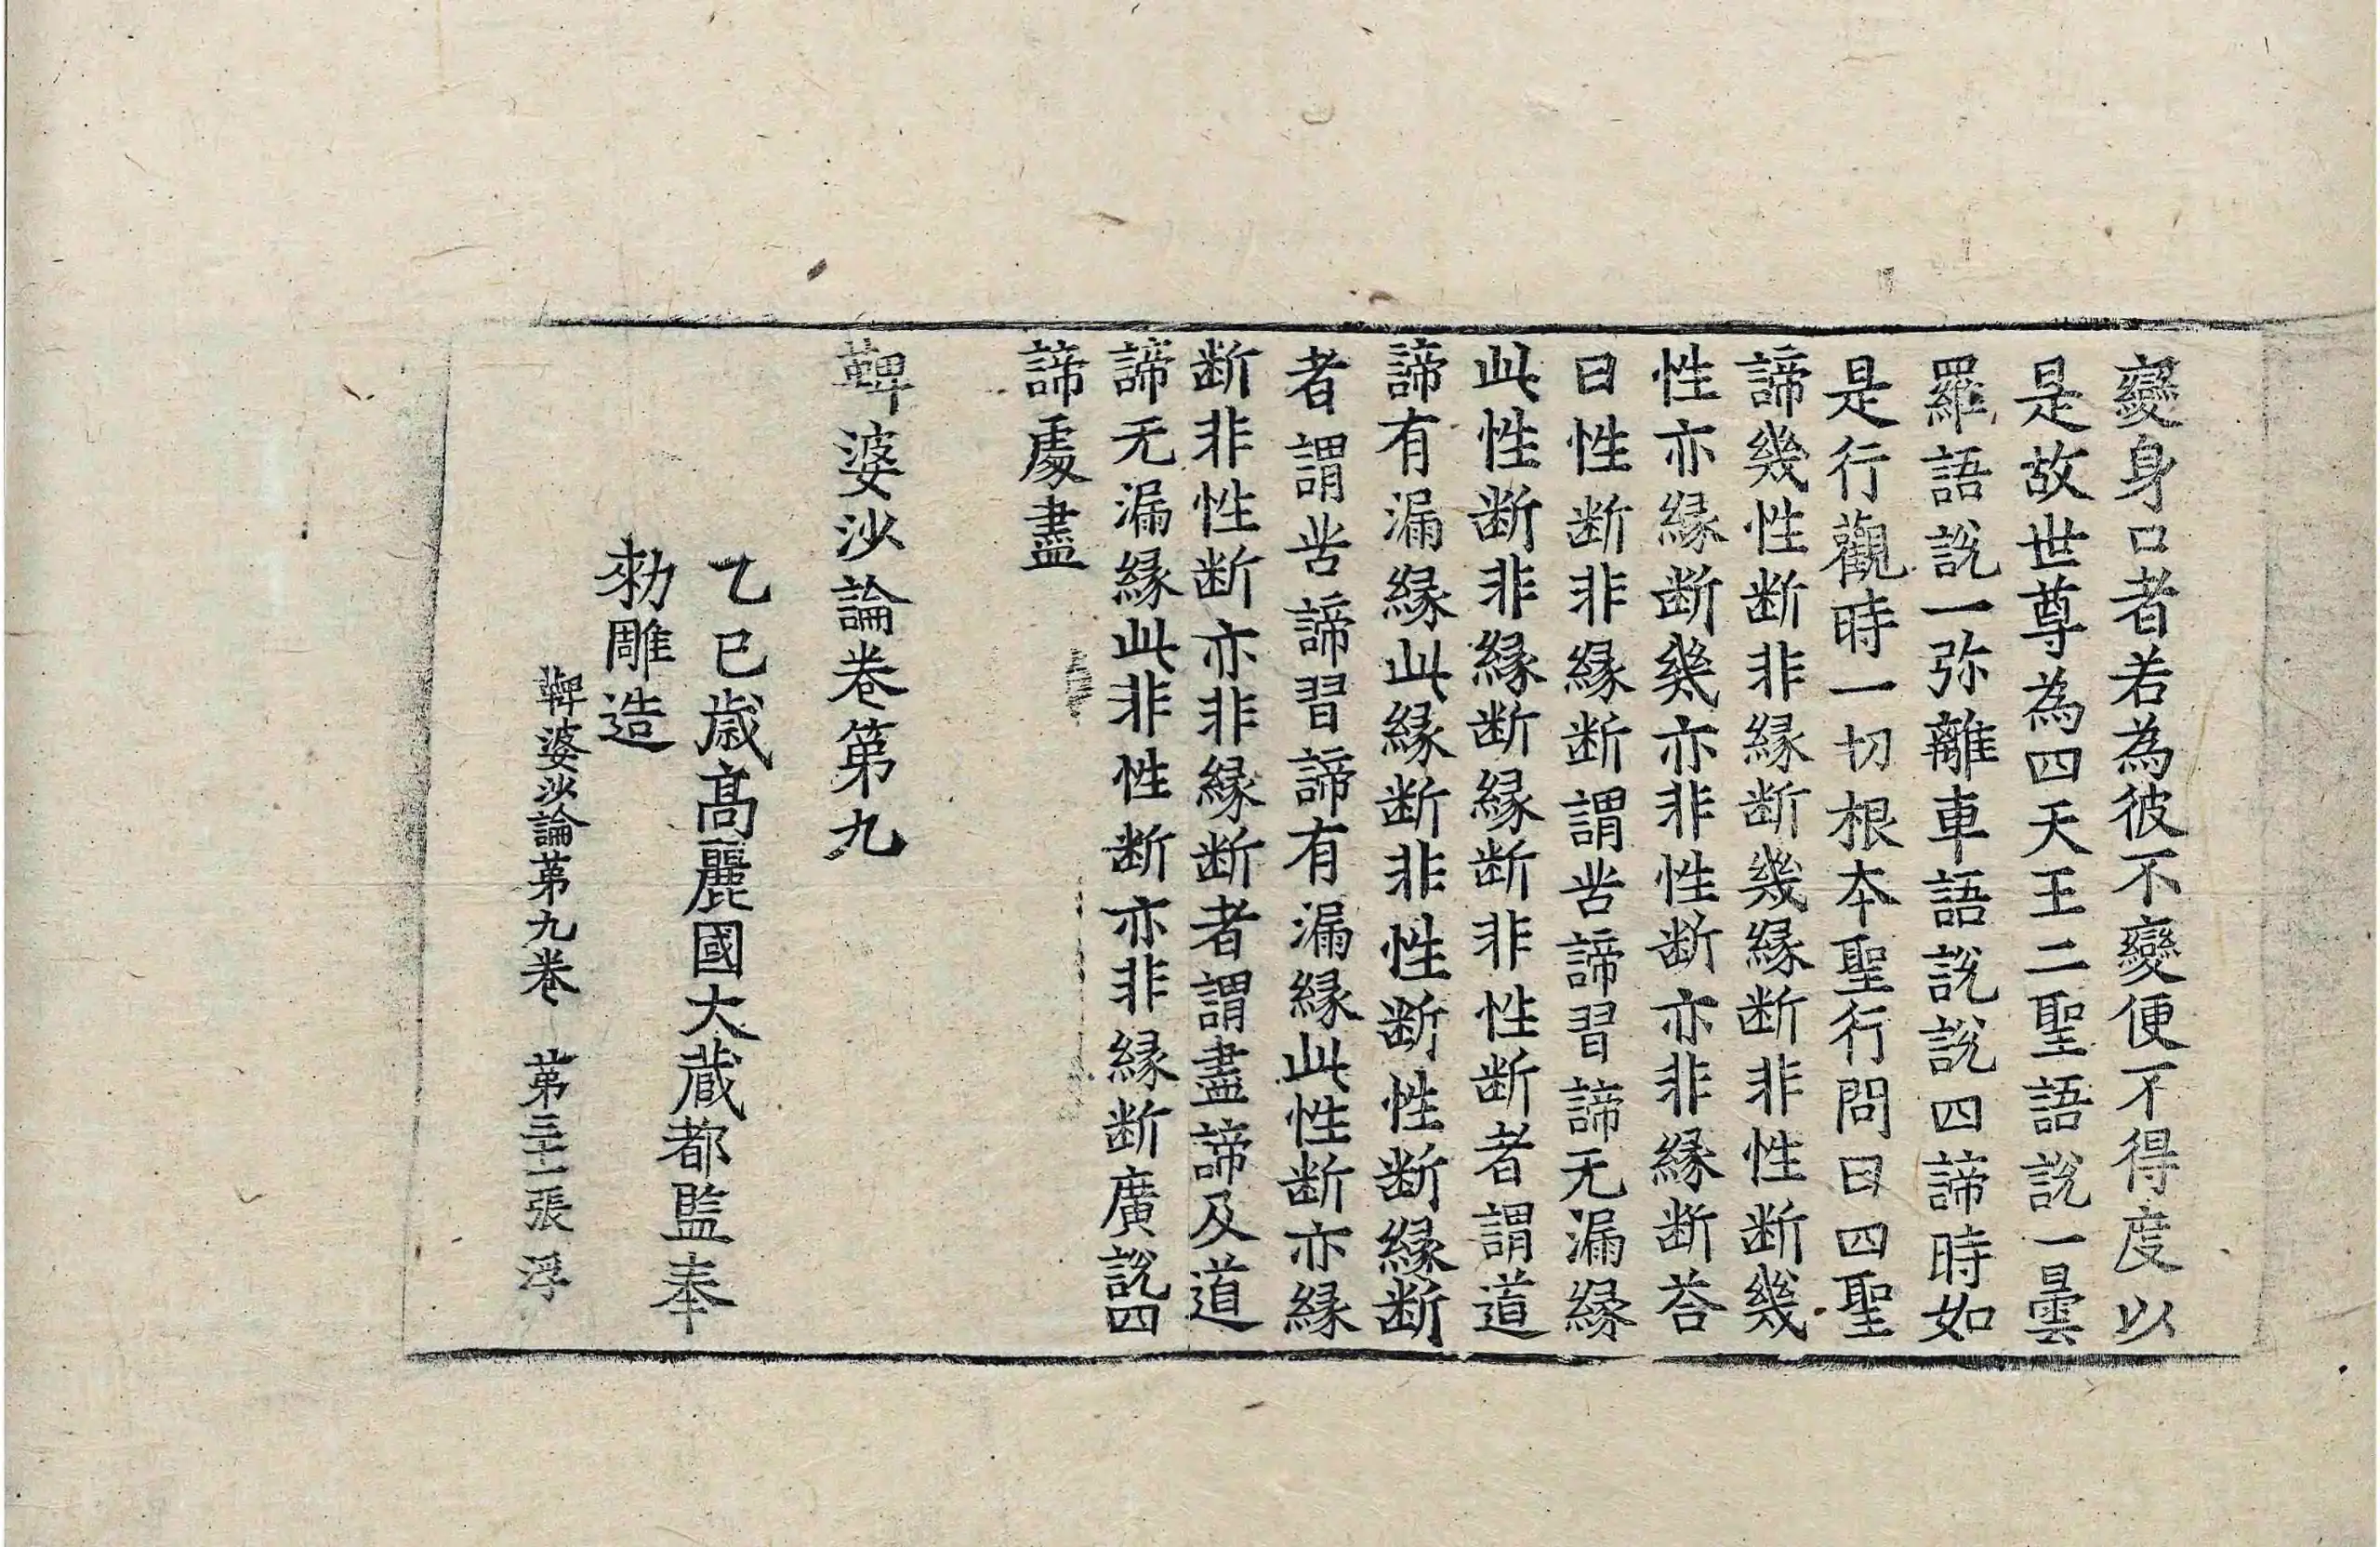 變身口者若為彼不變便不得度以
是故世尊為四天王二聖語說一曇
羅語說一弥離車語說說四諦時如
是行觀時一切根本聖行問曰四聖
諦幾性断非緣断幾緣断非性断幾
性亦緣断幾亦非性断亦非緣断荅
曰性断非緣断謂苦諦習諦无漏緣
此性断非緣断緣断非性断者謂道
諦有漏緣此緣断非性断性断緣断
者謂苦諦習諦有漏緣此性断亦緣
断非性断亦非緣断者謂盡諦及道
諦无漏緣此非性断亦非緣断廣說四
諦處盡
鞞婆沙論卷第九
乙巳歲高麗國大藏都監奉
勑雕造
鞞婆沙論第九卷　第三十一張　浮